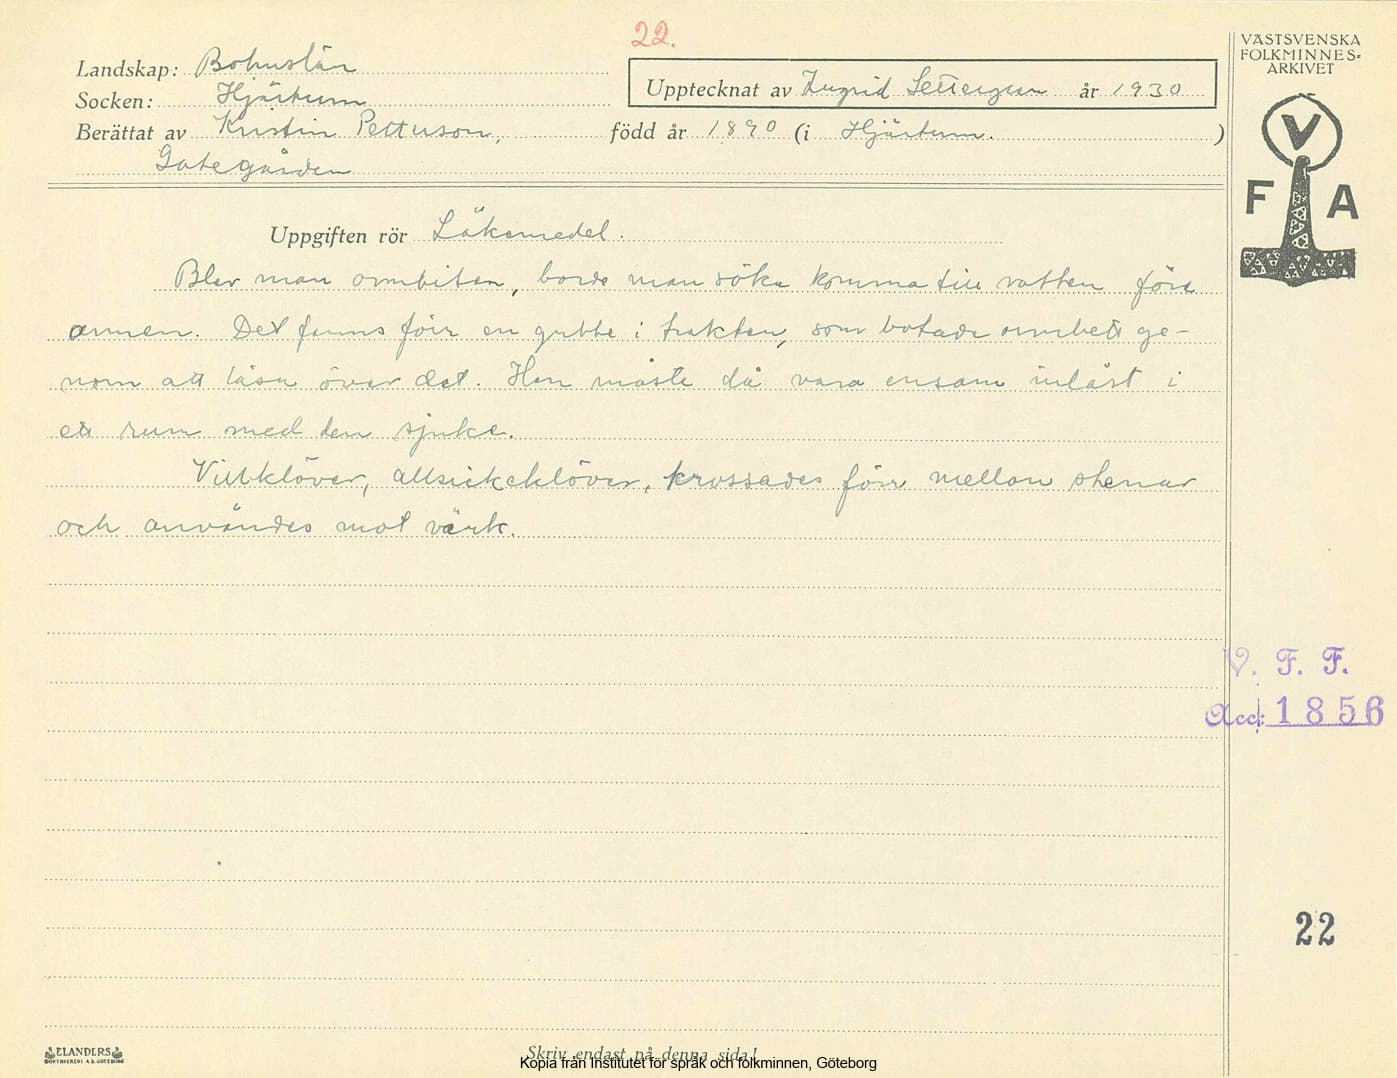 22.
VÄSTSVENSKA
FOLKMINNES=
ARKIVET
Landskap: Bohuslän
Socken: Hjärtum
Upptecknat av Ingrid Settergren år 1930
Berättat av Kristin Petterson, född år 1890 (i Hjärtum. )
Gategården
V
F A
Uppgiften rör Läkemedel.
Blev man ormbiten, borde man söka komma till vatten före
ormen. Det fanns förr en gubbe i trakten, som botade ormbett ge-
nom att läsa över det. Han måste då vara ensam inlåst i
ett rum med den sjuke.
Vitklöver, allsickeklöver, krossades förr mellan stenar
och användes mot värk.
V. F. F.
Acc: 1856
22
ELANDERS
BOKTRYCKERI A.B. GÖTEBORG
Skriv endast på denna sida!
Kopia från Institutet för språk och folkminnen, Göteborg